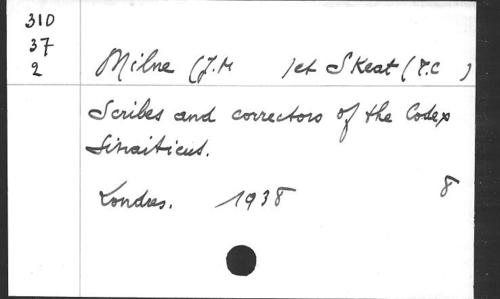 310
37
2
Milne (J.M ) et Skeat (T.C )
Scribes and correctors of the Codex
Sinaiticus.
Londres. 1938 8